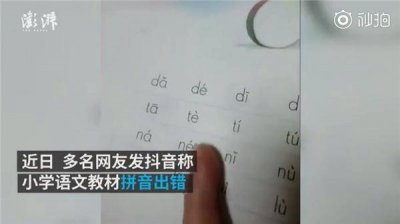 澎湃
秒拍
dǎ dé dī d
tā tè tí tú
ná né nǐ nǜ
lǜ
近日 多名网友发抖音称
小学语文教材拼音出错